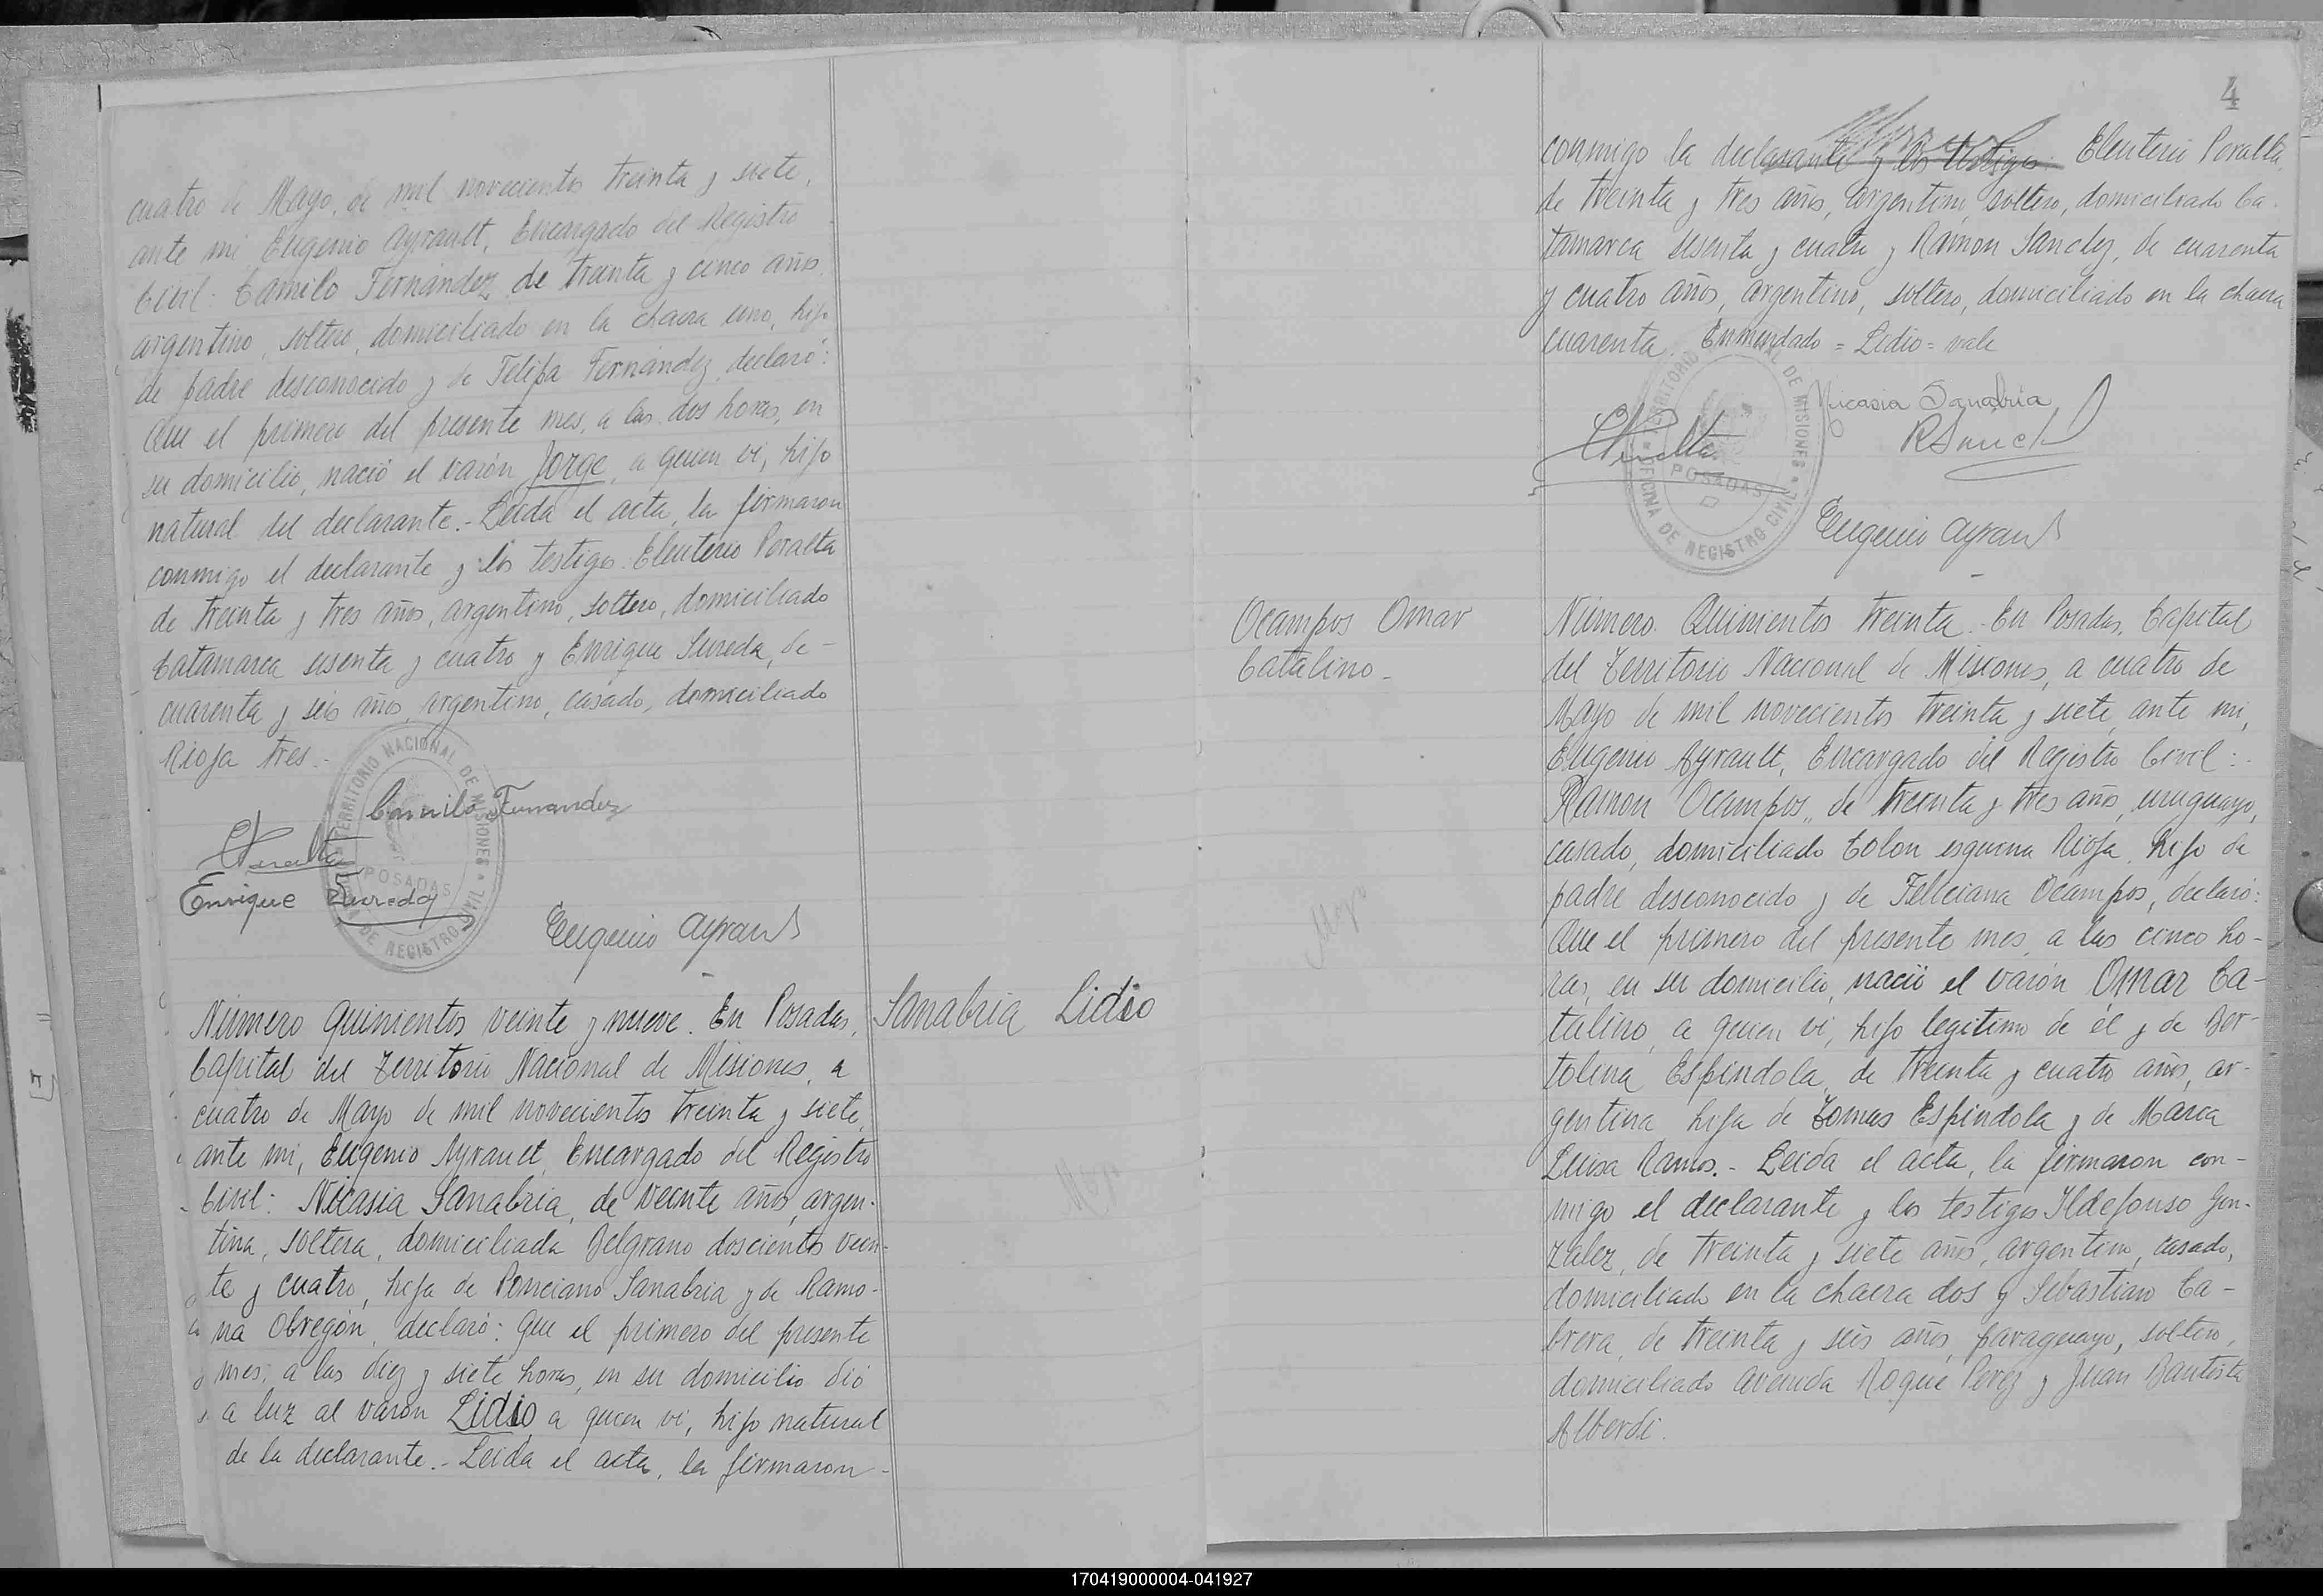 cuatro de Mayo, de mil novecientos treinta y siete,
ante mi Eugenio Ayrault, Encargado del Registro
Civil: Camilo Fernández, de treinta y cinco años,
argentino, soltero, domiciliado en la chacra uno, hijo
de padre desconocido y de Felipa Fernández, declaró:
Que el primero del presente mes, a las dos horas, en
su domicilio, nació el varón Jorge, a quien vi, hijo
natural del declarante.- Leída el acta, la firmaron
conmigo el declarante y los testigos Eleuterio Peralta
de treinta y tres años, argentino, soltero, domiciliado
Catamarca sesenta y cuatro y Enrique Sureda, de-
cuarenta y seis años, argentino, casado, domiciliado
Rioja tres.-
TERRITORIO NACIONAL DE MISIONES
POSADAS
DE REGISTRO CIVIL
Camilo Fernandez
EPeralta
Enrique Sureda
Eugenio Ayrault
Número Quinientos veinte y nueve. En Posadas,
Sanabria Lidio
Capital del Territorio Nacional de Misiones, a
cuatro de Mayo de mil novecientos treinta y siete,
ante mi, Eugenio Ayrault, Encargado del Registro
Civil: Nicasia Sanabria, de veinte años, argen-
tina, soltera, domiciliada Belgrano doscientos vein-
te y cuatro, hija de Ponciano Sanabria y de Ramo-
na Obregón, declaró: que el primero del presente
mes, a las diez y siete horas, en su domicilio dió
a luz al varón Lidio, a quien vi, hijo natural
de la declarante.- Leída el acta, la firmaron-
4
conmigo la declarante y los testigos Eleuterio Peralta
de treinta y tres años, argentino, soltero, domiciliado Ca-
tamarca sesenta y cuatro y Ramon Sanchez, de cuarenta
y cuatro años, argentino, soltero, domiciliado en la chacra
cuarenta. Enmendado = Lidio = vale
TERRITORIO NACIONAL DE MISIONES
POSADAS
OFICINA DE REGISTRO CIVIL
Nicasia Sanabria
EPeralta
RSanch
Eugenio Ayrault
Ocampos Omar
Catalino-
Número Quinientos treinta.- En Posadas, Capital
del Territorio Nacional de Misiones, a cuatro de
Mayo de mil novecientos treinta y siete, ante mi,
Eugenio Ayrault, Encargado del Registro Civil:
Ramon Ocampos, de treinta y tres años, uruguayo,
casado, domiciliado Colon esquina Rioja, hijo de
padre desconocido y de Feliciana Ocampos, declaró:
Que el primero del presente mes, a las cinco ho-
ras, en su domicilio, nació el varón Omar Ca-
talino, a quien vi, hijo legitimo de él y de Ber-
tolina Espindola, de treinta y cuatro años, ar-
gentina hija de Tomas Espindola y de Maria
Luisa Ramos.- Leída el acta, la firmaron con-
migo el declarante y los testigos Ildefonso Gon-
zalez, de treinta y siete años, argentino, casado,
domiciliado en la chacra dos y Sebastian Ca-
brera, de treinta y seis años, paraguayo, soltero,
domiciliado Avenida Roque Perez y Juan Bautista
Alberdi.
170419000004-041927